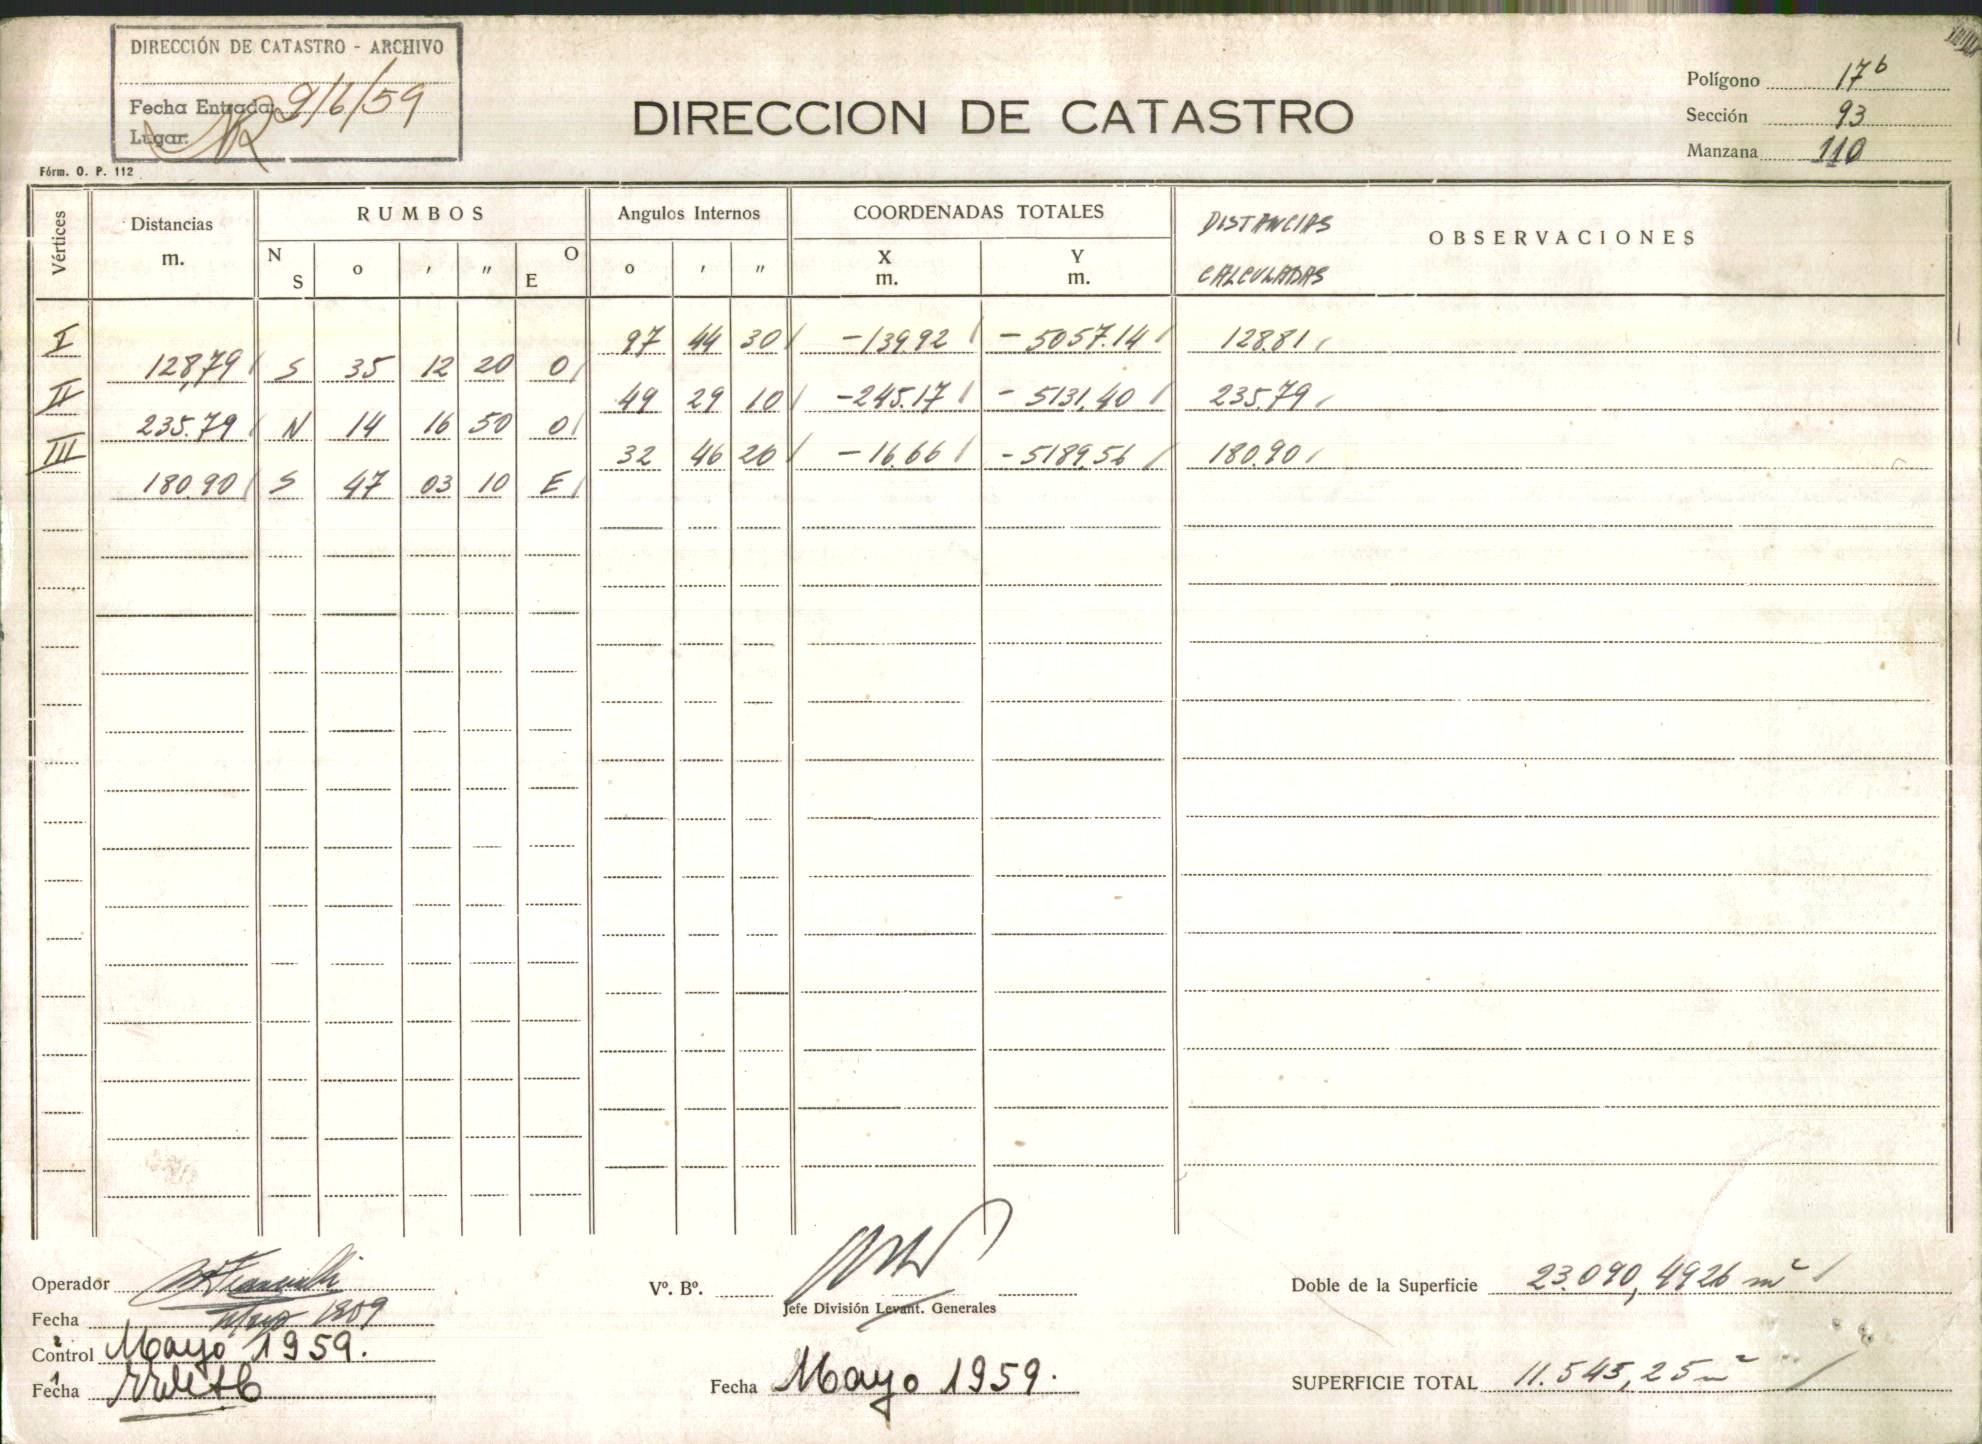 DIRECCIÓN DE CATASTRO - ARCHIVO
Fecha Entrada: 9/6/59
Lugar:
DIRECCION DE CATASTRO
Polígono 17b
Sección 93
Manzana 110
Fórm. O. P. 112
Vértices Distancias m. RUMBOS N S o ' " E O Angulos Internos o ' " COORDENADAS TOTALES X m. Y m. DISTANCIAS CALCULADAS OBSERVACIONES
I 97 44 30 -139.92 -5057.14 128.81
128,79 S 35 12 20 O
II 49 29 10 -245.17 -5131.40 235.79
235.79 N 14 16 50 O
III 32 46 20 -16.66 -5189.56 180.90
180.90 S 47 03 10 E
Operador
Fecha Mayo 1959
Control Mayo 1959.
Fecha
Vº. Bº.
Jefe División Levant. Generales
Fecha Mayo 1959.
Doble de la Superficie 23.090,4926 m²
SUPERFICIE TOTAL 11.545,25 m²